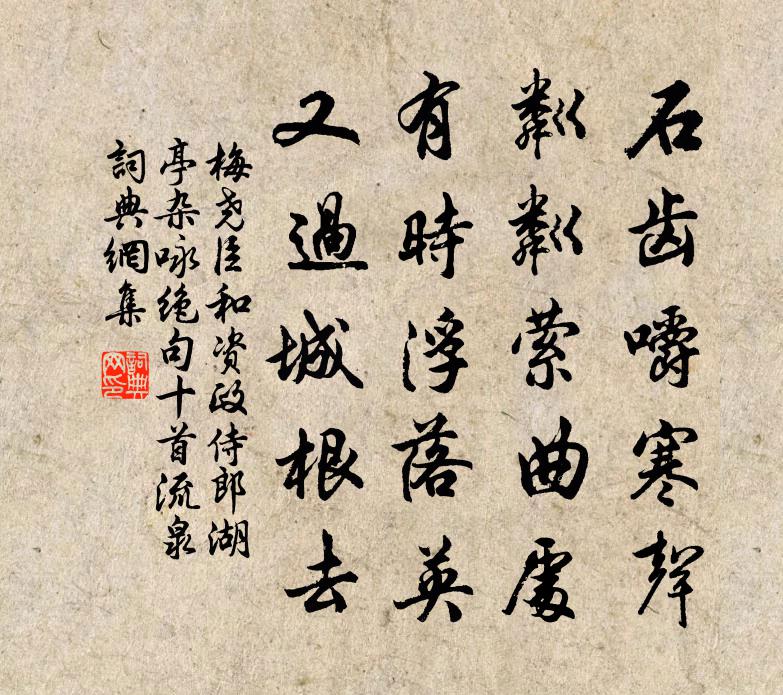 石齿嚼寒聲
粼粼萦曲處
有時浮落英
又過城根去
梅尧臣和资政侍郎湖
亭杂咏绝句十首流泉
詞典網集
詞典
网印